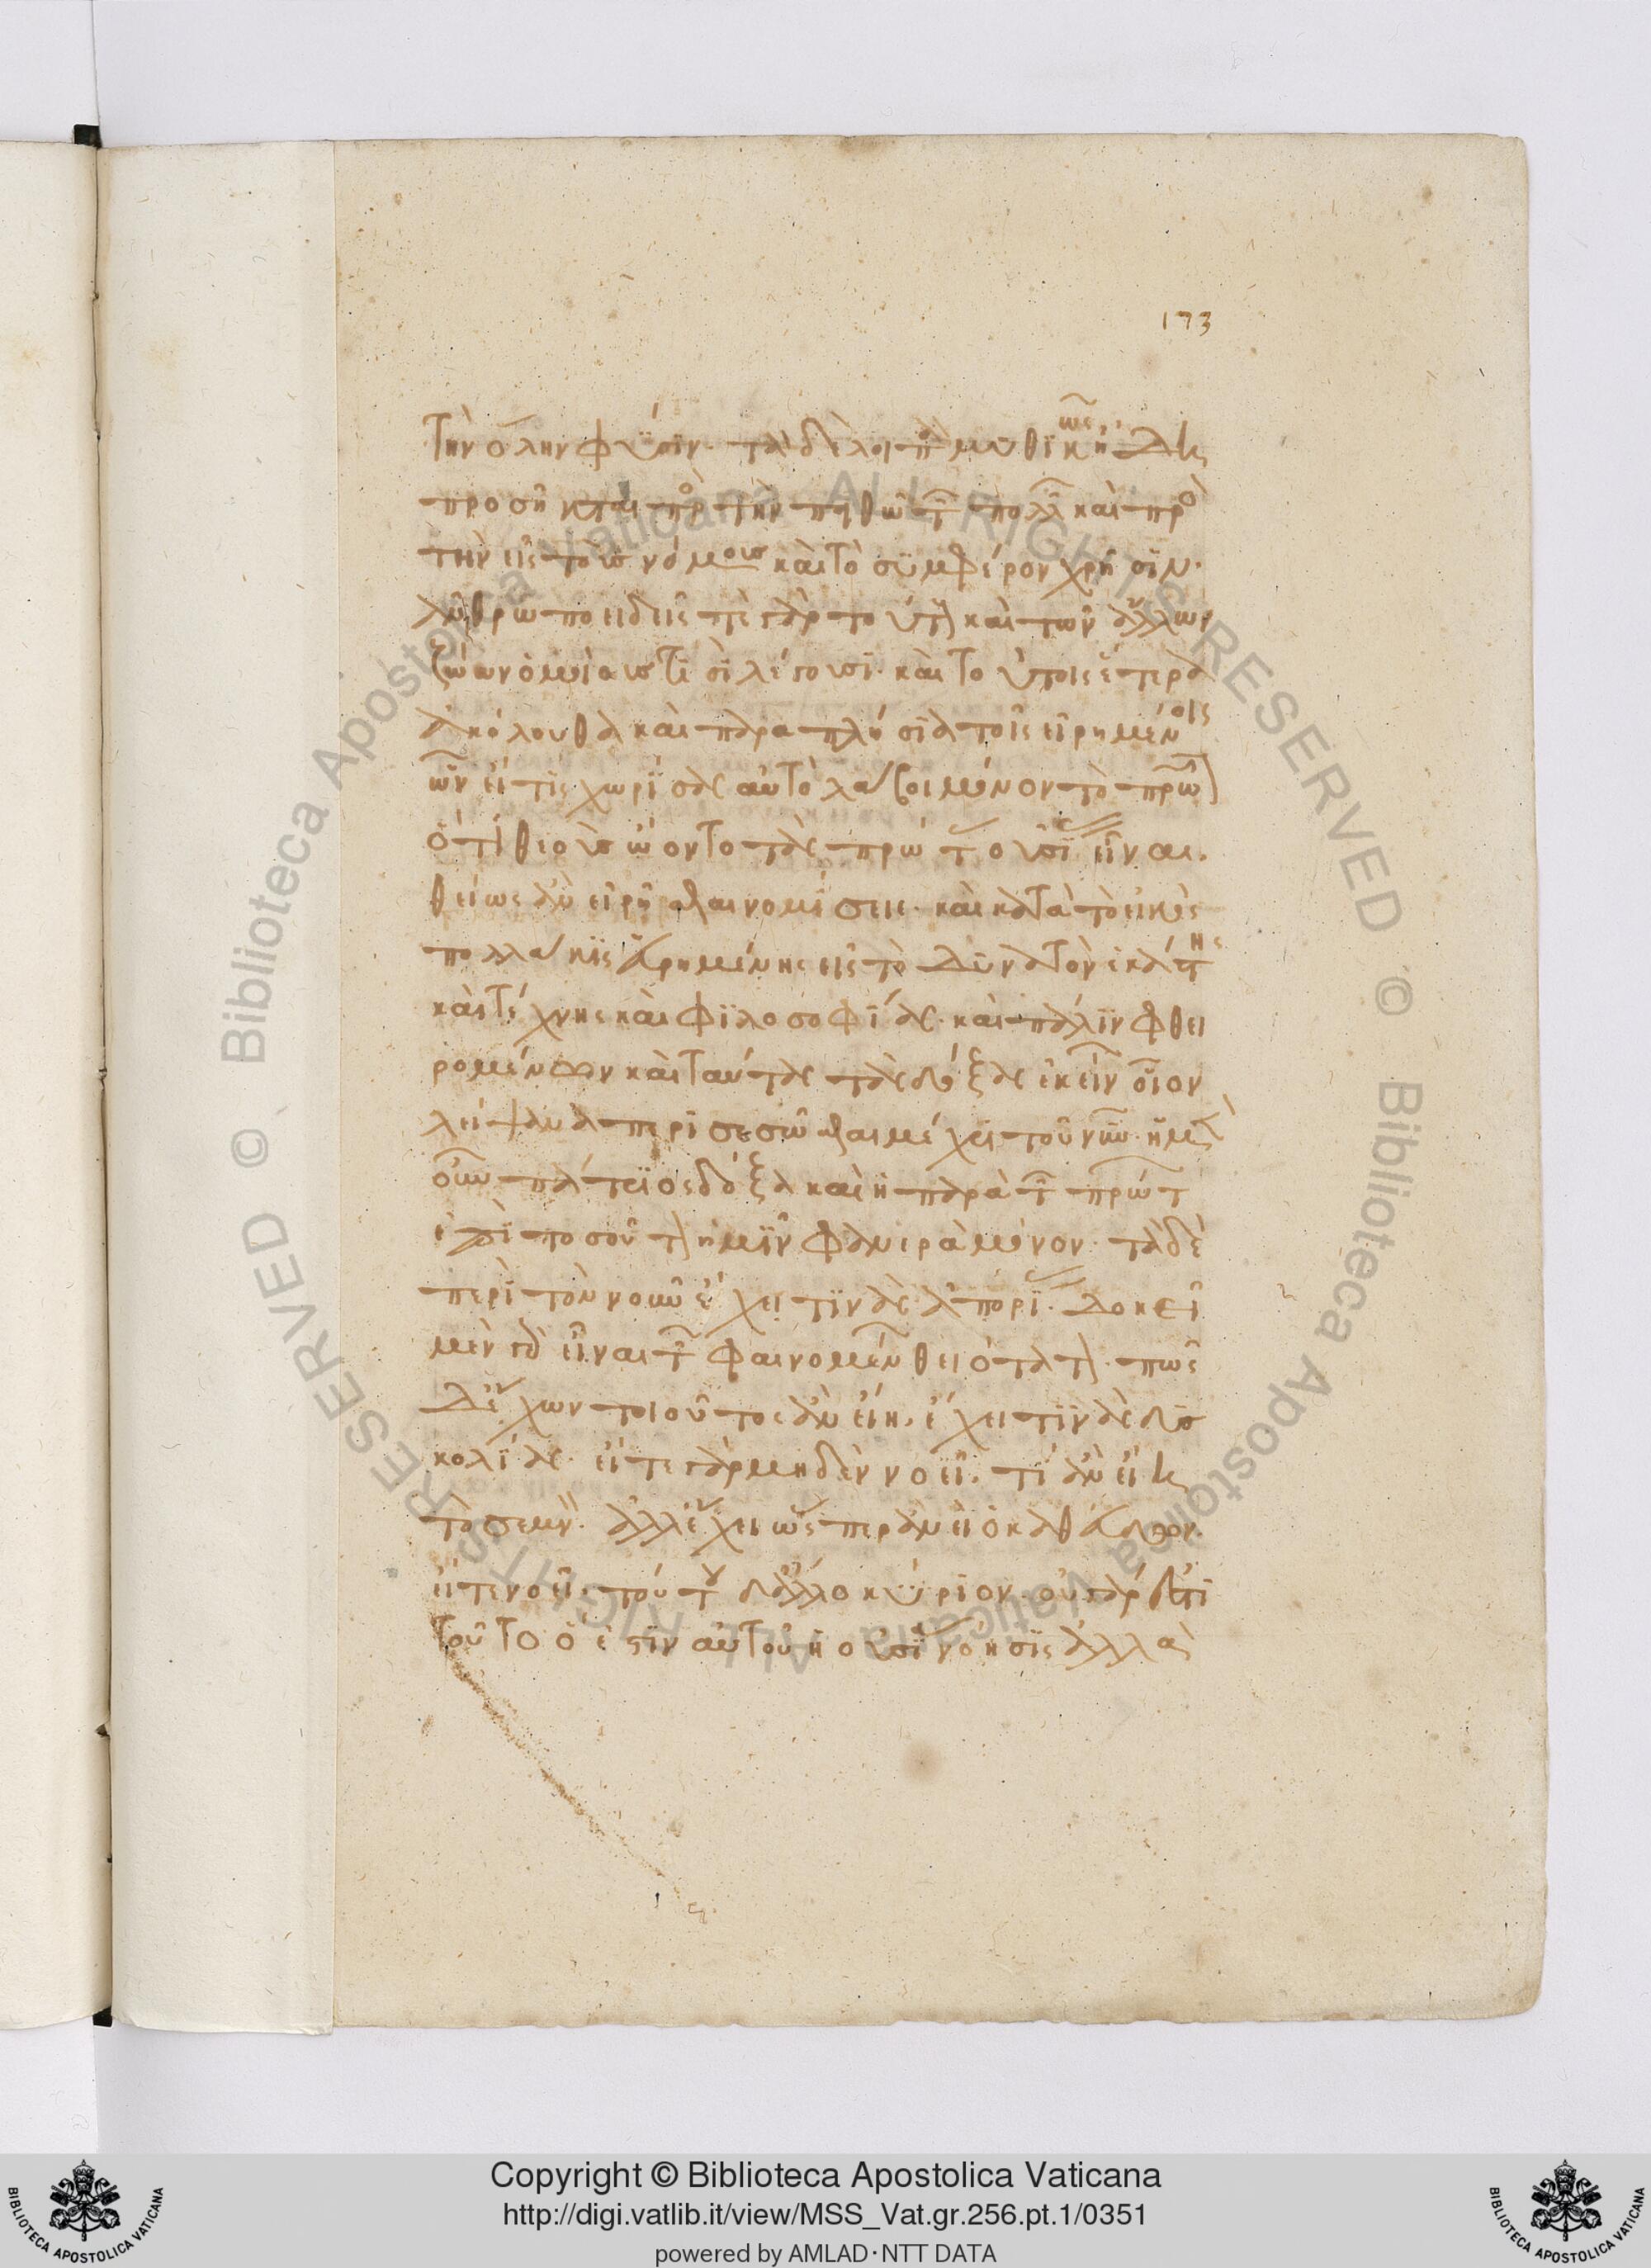 173
τὴν ὅλην φύσιν· τὰ δὲ λοιπὰ μυθικῶς ἤδη
προσῆκται πρὸς τὴν πειθὼ τῶν πολλῶν καὶ πρὸς
τὴν εἰς τοὺς νόμους καὶ τὸ συμφέρον χρῆσιν·
ἀνθρωποειδεῖς τε γὰρ τούτους καὶ τῶν ἄλλων
ζώων ὁμοίους τισὶ λέγουσι· καὶ τούτοις ἕτερα
ἀκόλουθα καὶ παραπλήσια τοῖς εἰρημένοις
ὧν εἴ τις χωρίσας αὐτὸ λάβοι μόνον τὸ πρῶτον
ὅτι θεοὺς ὤοντο τὰς πρώτας οὐσίας εἶναι.
θείως ἂν εἰρῆσθαι νομίσειε· καὶ κατὰ τὸ εἰκὸς
πολλάκις εὑρημένης εἰς τὸ δυνατὸν ἑκάστης
καὶ τέχνης καὶ φιλοσοφίας· καὶ πάλιν φθει
ρομένων καὶ ταύτας τὰς δόξας ἐκείνων οἷον
λείψανα περισεσῶσθαι μέχρι τοῦ νῦν· ἡ μὲν
οὖν πάτριος δόξα καὶ ἡ παρὰ τῶν πρώτων
ἐπὶ τοσοῦτον ἡμῖν φανερὰ μόνον· τὰ δὲ
περὶ τὸν νοῦν ἔχει τινὰς ἀπορίας· δοκεῖ
μὲν γὰρ εἶναι τῶν φαινομένων θειότατον· πῶς
δ' ἔχων τοιοῦτος ἂν εἴη, ἔχει τινὰς δυσ
κολίας· εἴτε γὰρ μηδὲν νοεῖ, τί ἂν εἴη
τὸ σεμνόν· ἀλλ' ἔχει ὥσπερ ἂν εἰ ὁ καθεύδων·
εἴτε νοεῖ, τούτου δ' ἄλλο κύριον· οὐ γάρ ἐστι
τοῦτο ὅ ἐστιν αὐτοῦ ἡ οὐσία νόησις ἀλλὰ
Copyright © Biblioteca Apostolica Vaticana
http://digi.vatlib.it/view/MSS_Vat.gr.256.pt.1/0351
powered by AMLAD·NTT DATA